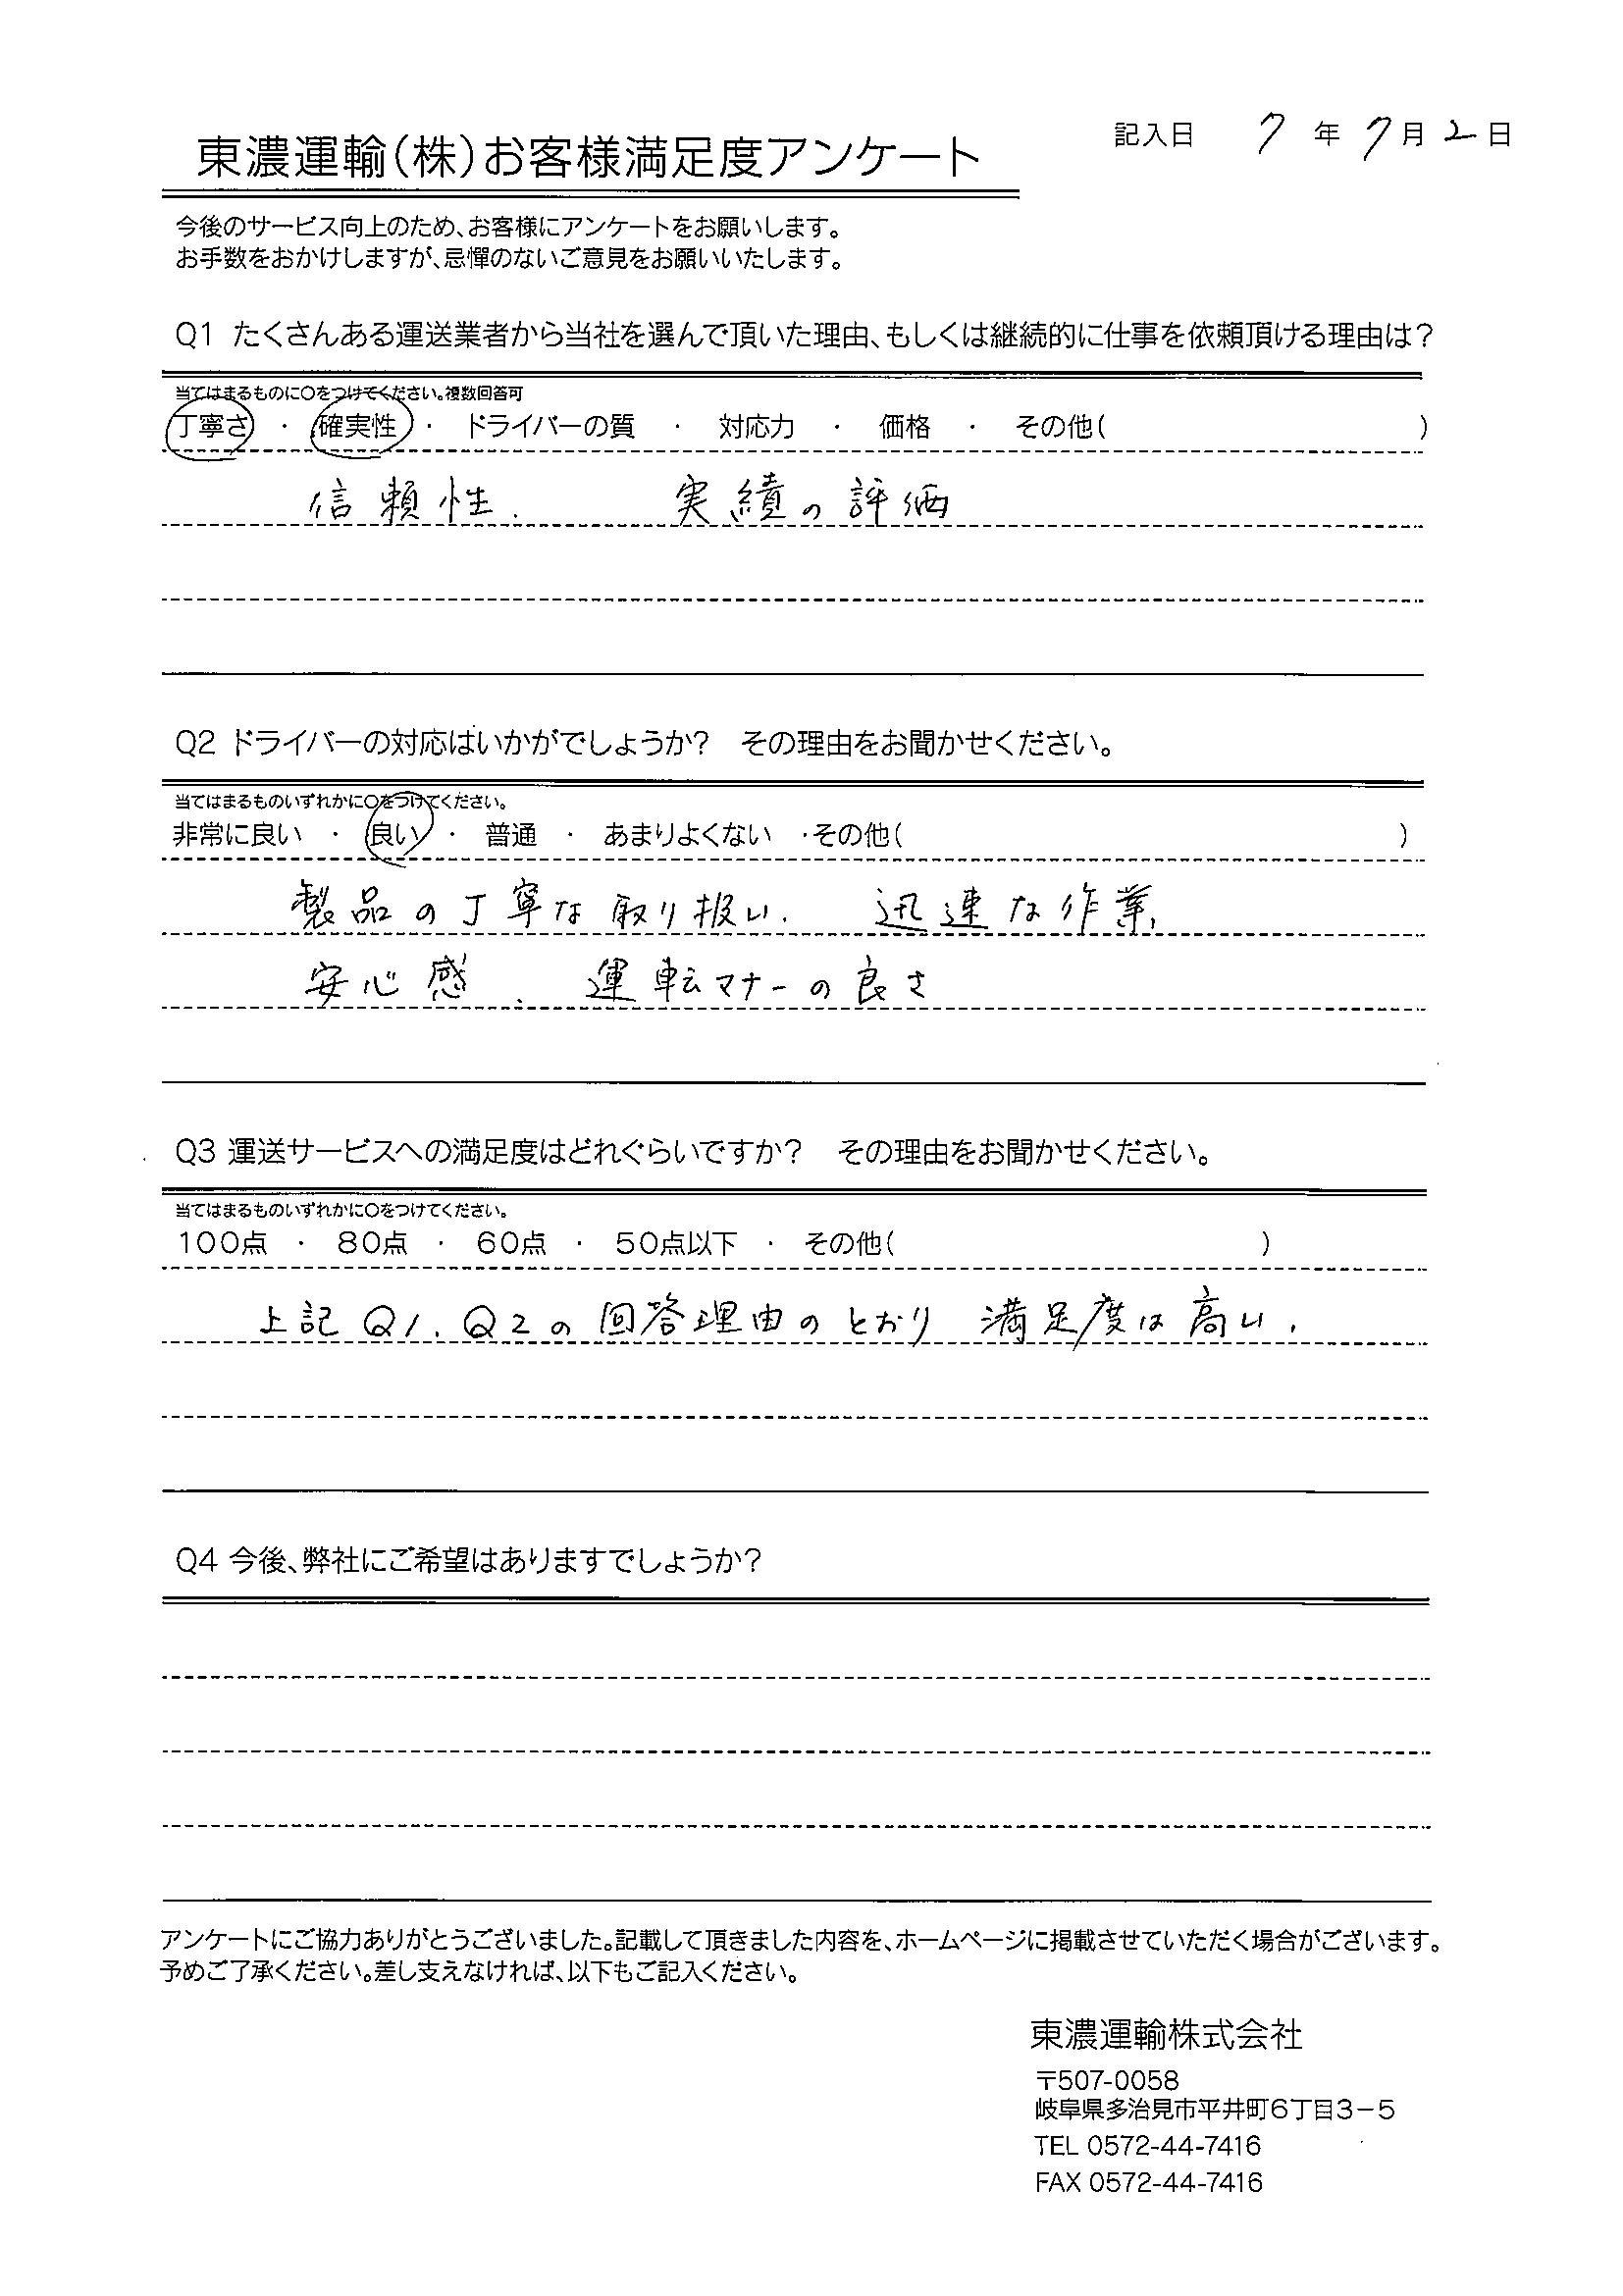 記入日 7年7月2日
東濃運輸(株)お客様満足度アンケート
今後のサービス向上のため、お客様にアンケートをお願いします。
お手数をおかけしますが、忌憚のないご意見をお願いいたします。
Q1 たくさんある運送業者から当社を選んで頂いた理由、もしくは継続的に仕事を依頼頂ける理由は?
当てはまるものに○をつけてください。複数回答可
丁寧さ ・ 確実性 ・ ドライバーの質 ・ 対応力 ・ 価格 ・ その他( )
信頼性. 実績の評価
Q2 ドライバーの対応はいかがでしょうか? その理由をお聞かせください。
当てはまるものいずれかに○をつけてください。
非常に良い ・ 良い ・ 普通 ・ あまりよくない ・その他( )
製品の丁寧な取り扱い. 迅速な作業,
安心感. 運転マナーの良さ
Q3 運送サービスへの満足度はどれぐらいですか? その理由をお聞かせください。
当てはまるものいずれかに○をつけてください。
100点 ・ 80点 ・ 60点 ・ 50点以下 ・ その他( )
上記Q1.Q2の回答理由のとおり 満足度は高い.
Q4 今後、弊社にご希望はありますでしょうか?
アンケートにご協力ありがとうございました。記載して頂きました内容を、ホームページに掲載させていただく場合がございます。
予めご了承ください。差し支えなければ、以下もご記入ください。
東濃運輸株式会社
〒507-0058
岐阜県多治見市平井町6丁目3-5
TEL 0572-44-7416
FAX 0572-44-7416